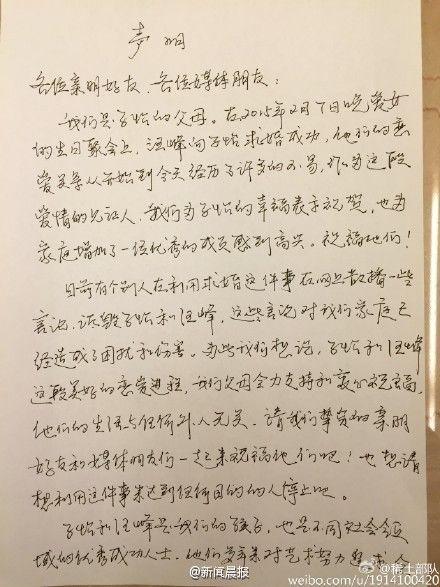 声明
各位亲朋好友,各位媒体朋友:
我们是子怡的父母。在2015年2月7日晚,爱女
的生日聚会上,汪峰向子怡求婚成功,他们的恋
爱关系从开始到今天经历了许多的不易,作为这段
爱情的见证人,我们为子怡的幸福表示祝贺,也为
家庭增加了一位优秀的成员感到高兴。祝福他们!
目前有个别人在利用求婚这件事在网上散播一些
言论,诋毁子怡和汪峰,这些言论对我们家庭已
经造成了困扰和伤害。为此我们想说,子怡和汪峰
这段美好的恋爱进程,我们父母全力支持和衷心祝福,
他们的生活与任何外人无关。请我们挚爱的亲朋
好友和媒体朋友们一起来祝福他们吧!也想请
想利用这件事来达到任何目的的人停止吧。
子怡和汪峰是我们的孩子,也是不同社会
域的优秀成功人士,他们对艺术努力
@新闻晨报
@稀土部队
weibo.com/u/1914100420